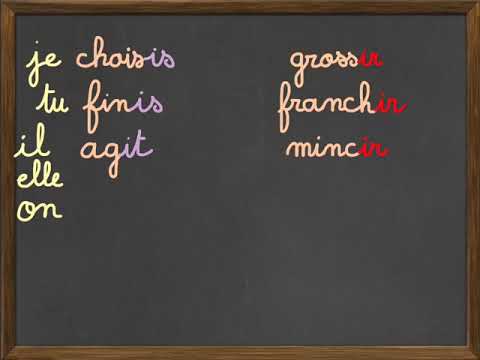 je choisis grossir
tu finis franchir
il agit mincir
elle
on